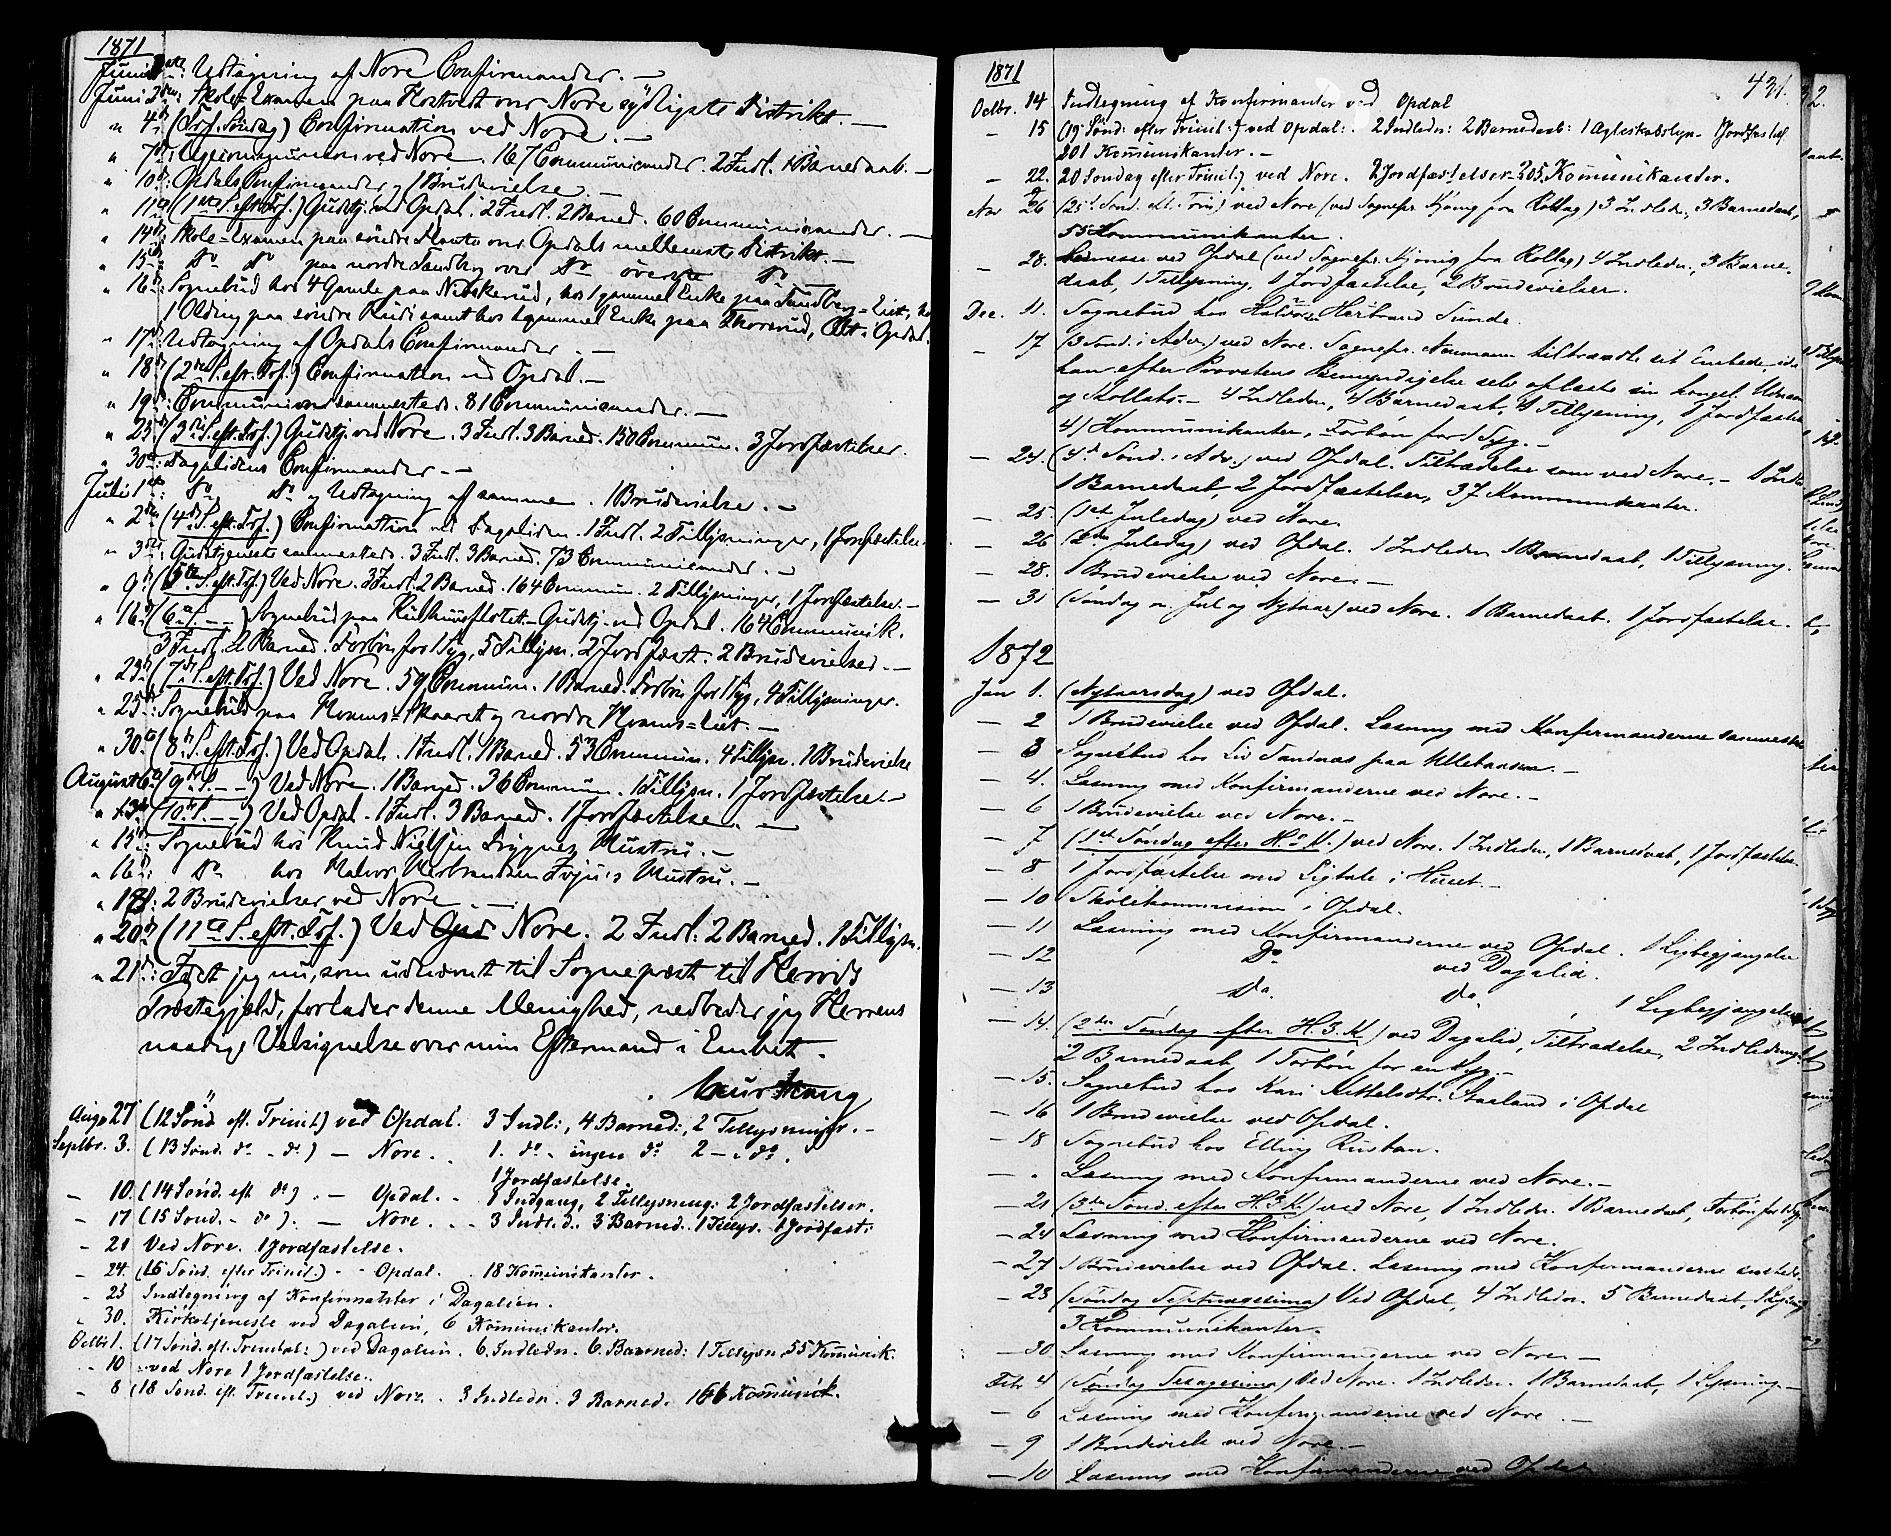 1871
Juni 1ste: Udtagning af Nore Confirmander. —
Juni 2den: Skole-Examen paa Flostvedt over Nore sydligste Distrikt. —
" 4de: (Tref. Søndag) Confirmation ved Nore. —
" 7de: Communion ved Nore. 167 Communicander. 2 Indl. 1 Barnedaab. —
" 10de: Opdals Confirmander og 1 Brudevielse. —
" 11te: (1ste S. eft. Tref.) Gudstj. ved Opdal. 2 Indl. 2 Barned. 60 Communicander. —
" 14de: Skole-Examen paa søndre over Opdals mellemste Distrikt. —
" 15de: Do Do paa nordre over Do øverste Do
" 16de: Sognebud hos 4 Gamle paa hos 1 gammel Enke paa
1 Olding paa søndre Ruud samt hos 1 gammel Enke paa Alt i Opdal.
" 17de: Udtagning af Opdals Confirmander. —
" 18de: (2den S. eft. Tref.) Confirmation ved Opdal. —
" 19de: Communion sammesteds. 81 Communicander. —
" 25de: (3die S. eft. Tref.) Gudstj. ved Nore. 3 Indl. 3 Barned. 130 Commun. 3 Jordfæstelser.
" 30te: Dagalidens Confirmander. —
Juli 1ste: Do Do og Udtagning af samme. 1 Brudevielse. —
" 2den: (4de S. eft. Tref.) Confirmation ved Dagaliden. 1 Indl. 2 Tillysninger, 1 Jordfæstelse.
" 3die: Gudstjeneste sammesteds. 3 Indl. 3 Barned. 73 Communicander. —
" 9de: (5te S. eft. Tref.) Ved Nore. 3 Indl. 2 Barned. 164 Commun. 2 Tillysninger, 1 Jordfæstelse. —
" 16de: (6te S. — —) Sognebud paa Gudstj. ved Opdal. 164 Communik.
3 Indl. 2 Barned. Forbøn for 1 Syg, 5 Tillysn. 2 Jordfæst. 2 Brudevielser. —
" 23de: (7de S. eft. Tref.) Ved Nore. 59 Commun. 1 Barned. Forbøn for 1 Syg, 4 Tillysninger.
" 25de: Sognebud paa og nordre
" 30te: (8de S. eft. Tref.) Ved Opdal. 1 Indl. 1 Barned. 53 Commun. 4 Tillysn. 1 Brudevielse
August 6te: (9de S. — —) Ved Nore. 1 Barned. 36 Commun. 1 Tillysn. 1 Jordfæstelse. —
" 13de: (10de S. — —) Ved Opdal. 1 Indl. 3 Barned. 1 Jordfæstelse. —
" 15de: Sognebud hos Knud Nielsen Hustru. —
" 16de: Do hos Halvor Herbrandsen Hustru. —
" 19de: 2 Brudevielser ved Nore. —
" 20de: (11te S. eft. Tref.) Ved Opd Nore. 2 Indl. 2 Barned. 1 Tillysn.
" 21de: Idet jeg nu, som udnævnt til Sognepræst til
Præstegjeld, forlader denne Menighed, nedbeder jeg Herrens
naadige Velsignelse over min Eftermand i Embedet.
Aug. 27 (12 Sønd eft. Trinit) ved Opdal. 3 Indl:, 4 Barned:, 2 Tillysninger. —
Septbr. 3. (13 Sønd. do - do) — Nore. 1. do - ingen do 2 — do.
1 Jordfæstelse.
— 10. (14 Sønd. eft do) — Opdal. — 1 Indgang, 2 Tillysning: 2 Jordfæstelser.
— 17 (15 Sønd. - do). — Nore. 3 Indled. 3 Barned. 1 Tillys. 1 Jordfæst:
— 21 Ved Nore. 1 Jordfæstelse.
— 24. (16 Sønd. efter Trinit.) - - Opdal. 18 Kommunikanter.
— 25 Indtegning af Konfirmanter i Dagalien.
" 30. Kirketjeneste ved Dagalien, 6 Kommunikanter.
Octbr 1. (17 Sønd. eft. Trinitat:) ved Dagalien. 6 Indledn. 6 Barned: 1 Tillysn 55 Kommunik.
" 10 ved Nore 1 Jordfæstelse.
— 8 (18 Sønd. eft. Trinit:) ved Nore. 3 Indledn. 3 Barned. 166 Kommunik.
1871
431.
Octbr. 14 Indtegning af Konfirmanter ved Opdal
— 15 (19 Sønd: efter Trinit:) ved Opdal: 2 Indledn: 2 Barnedaab: 1 Jordfæstel
201 Kommunikanter. —
— 22. 20 Søndag efter Trinit.) ved Nore. 2 Jordfæstelser 205 Kommunikander.
Nov 26 (25de Sønd. eft. Trin) ved Nore (ved Sognepr. fra Rollag) 3 Indledn., 3 Barnedaab,
55 Kommunikanter.
— 28. ved Opdal (ved Sognepr. fra Rollag) 4 Indledn., 3 Barne-
daab, 1 Tillysning, 1 Jordfæstelse, 2 Brudevielser.
Dec. 11. Sognebud hos Halvor Herbrand Sunde.
— 17 (3 Sønd. i Adv.) ved Nore. Sognepr. Neumann tiltraadte sit Embede, idet
han efter Provstens Bemyndigelse selv oplæste sin kongel. Udnævn
og Kollats. — 4 Indledn, 4 Barnedaab, 4 Tillysning, 1 Jordfæstel
41 Kommunikanter, Forbøn for 1 Syg. —
— 24. (4de Sønd. i Adv.) ved Opdal. Tiltrædelse som ved Nore. — 1 Indl
1 Barnedaab, 2 Jordfæstelser, 37 Kommunikanter.
— 25. (1ste Juledag) ved Nore.
— 26 (2den Juledag) ved Opdal. 1 Indledn 1 Barnedaab, 1 Tillysning.
— 28. 1 Brudevielse ved Nore. —
— 31 (Søndag m. Jul og Nytaar) ved Nore. 1 Barnedaab. 1 Jordfæstelse.
1872
Jan 1. (Nytaarsdag) ved Opdal.
— 2 1 Brudevielse ved Opdal. Læsning med Konfirmanderne sammested
— 3 Sognebud hos Liv Sandnæs paa
— 4. Læsning med Konfirmanderne ved Nore. —
— 6 1 Brudevielse ved Nore. —
— 7 (1ste Søndag efter H. 3 K.) ved Nore. 1 Indledn, 1 Barnedaab, 1 Jordfæstelse.
— 8 1 Jordfæstelse med Ligtale i Huset. —
— 10 Skolekommission i Opdal.
— 11 Læsning med Konfirmanderne ved Opdal. 1 Ligbegjængelse
— 12 Do ved Dagalid.
— 13 Do. Do. 1 Ligbegjængelse
— 14. (2den Søndag efter H. 3. K.) ved Dagalid, Tiltrædelse, 2 Indledning
2 Barnedaab 1 Forbøn for en Syg. —
— 15. Sognebud hos Kari Kittelsdtr. Staaland i Opdal
— 16 1 Brudevielse ved Opdal.
— 18 Sognebud hos Elling Rustan.
— " Læsning med Konfirmanderne ved Nore. —
— 21 (3die Sønd. efter H. 3 K.) ved Nore, 1 Indledn. 1 Barnedaab, Forbøn for 1 Syg.
— 24 Læsning med Konfirmanderne ved Nore.
— 27 1 Brudevielse ved Opdal. Læsning med Konfirmanderne
— 28 (Søndag Septuagesima) Ved Opdal, 4 Indledn. 5 Barnedaab,
3 Kommunikanter.
— 30 Læsning med Konfirmanderne ved Nore —
Febr 4 (Søndag Sexagesima) Ved Nore. 1 Indledn. 1 Barnedaab, 1 Lysning. —
— 6 Læsning med Konfirmanderne ved Nore. —
— 9 1 Brudevielse ved Nore. —
— 10 Læsning med Konfirmanderne ved Opdal